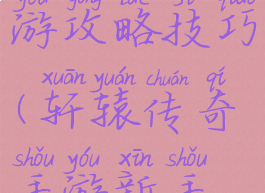 yóu gōng lüè jì qiǎo
游攻略技巧
xuān yuán chuán qí
(轩辕传奇
shǒu yóu xīn shǒu
手游新手